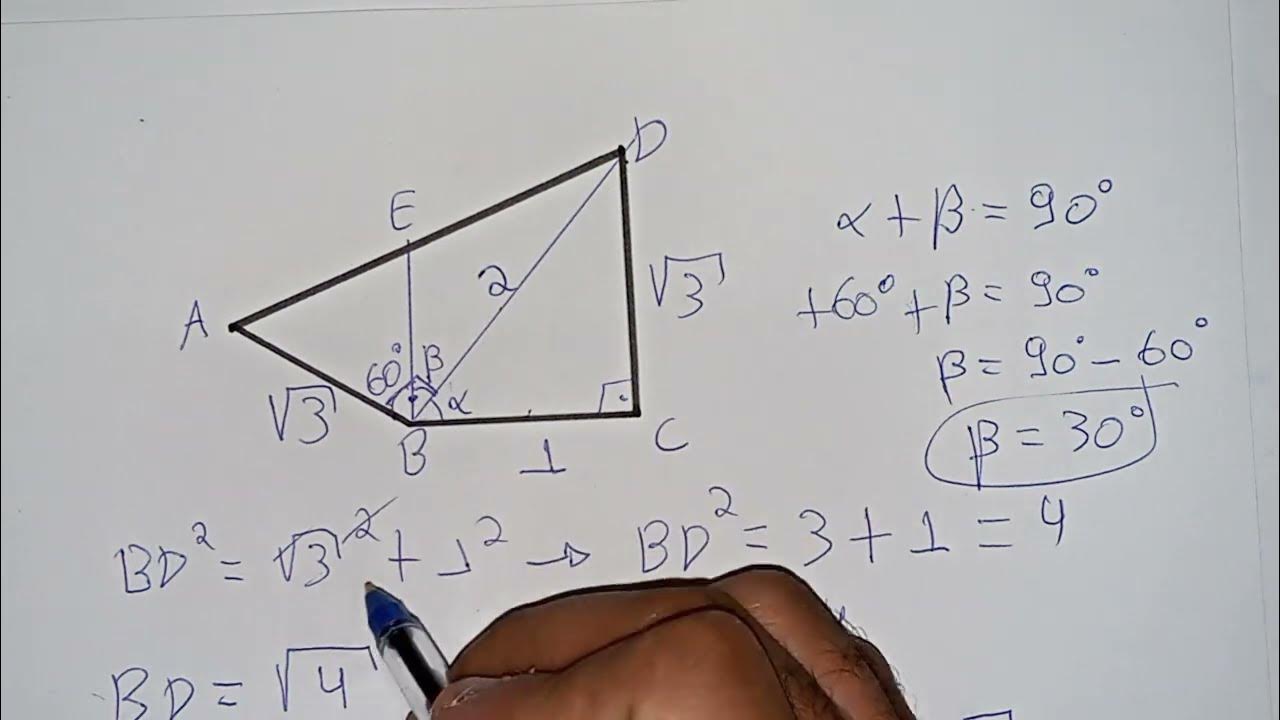 D
E
2
√3
A
60° β
√3
α
B
1
C
α + β = 90°
+60° + β = 90°
β = 90° − 60°
β = 30°
BD² = √3² + 1² → BD² = 3 + 1 = 4
BD = √4